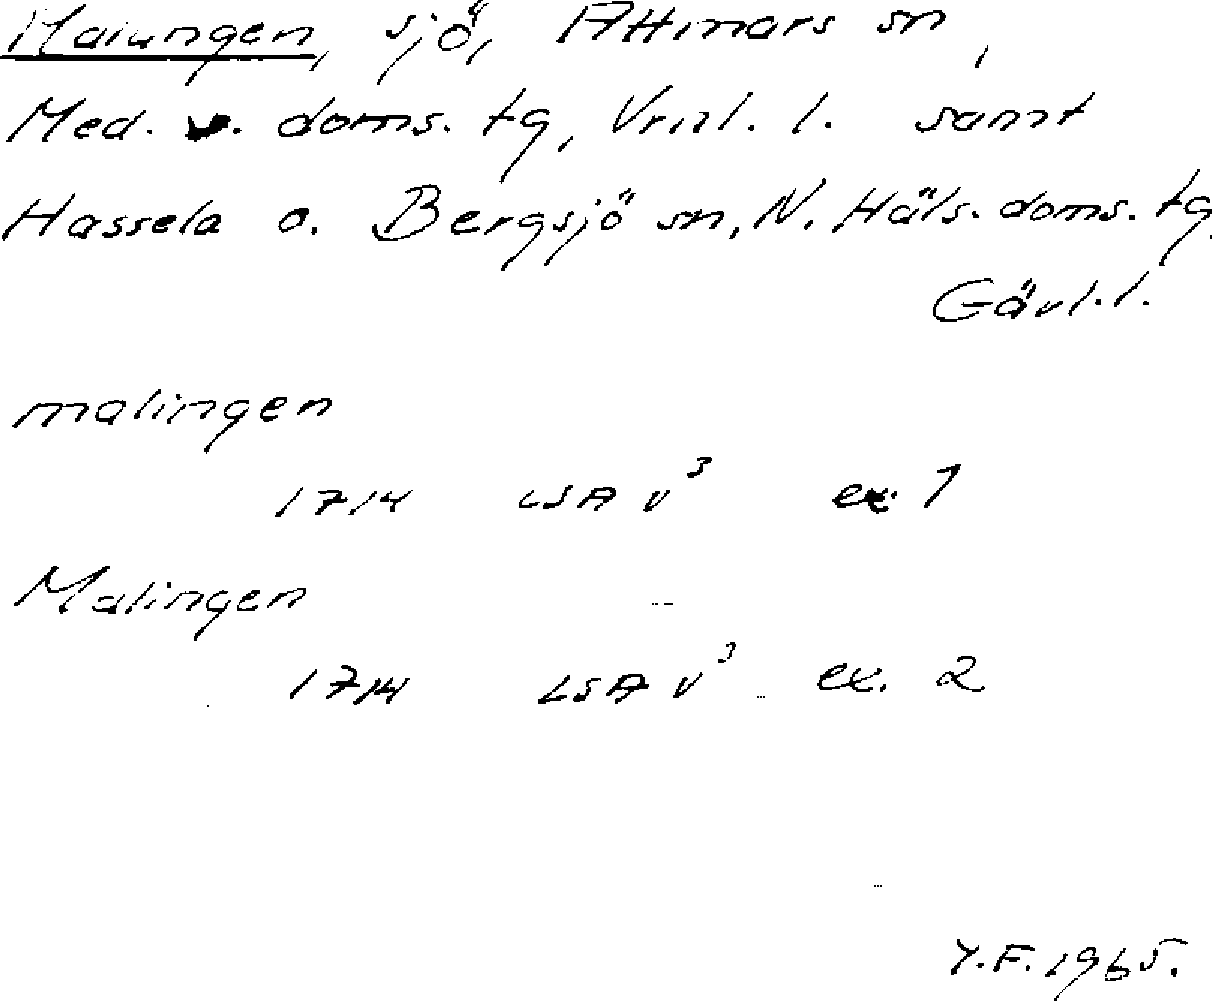 Malungen, sjö, Attmars sn,
Med. v. doms. tg, Vrnl. l. samt
Hassela o. Bergsjö sn, N. Häls. doms. tg
Gävl. l.
malingen
1714 LSA V3 ex. 1
Malingen
1714 LSA V3 ex. 2
Y.F. 1965.